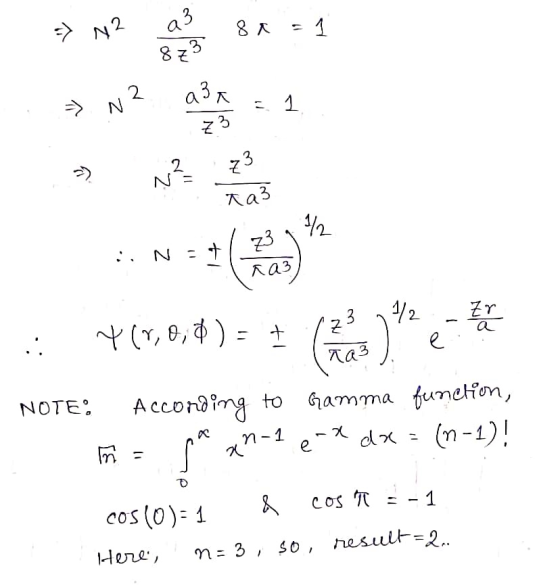 ⇒ N² a³/8z³ 8π = 1
⇒ N² a³π/z³ = 1
⇒ N² = z³/πa³
∴ N = ± (z³/πa³)^1/2
∴ Ψ(r, θ, φ) = ± (z³/πa³)^1/2 e^-Zr/a
NOTE: According to Gamma function,
Γn = ∫₀^∞ xⁿ⁻¹ e⁻ˣ dx = (n-1)!
cos(0)=1 & cos π = -1
Here, n=3, so, result=2..